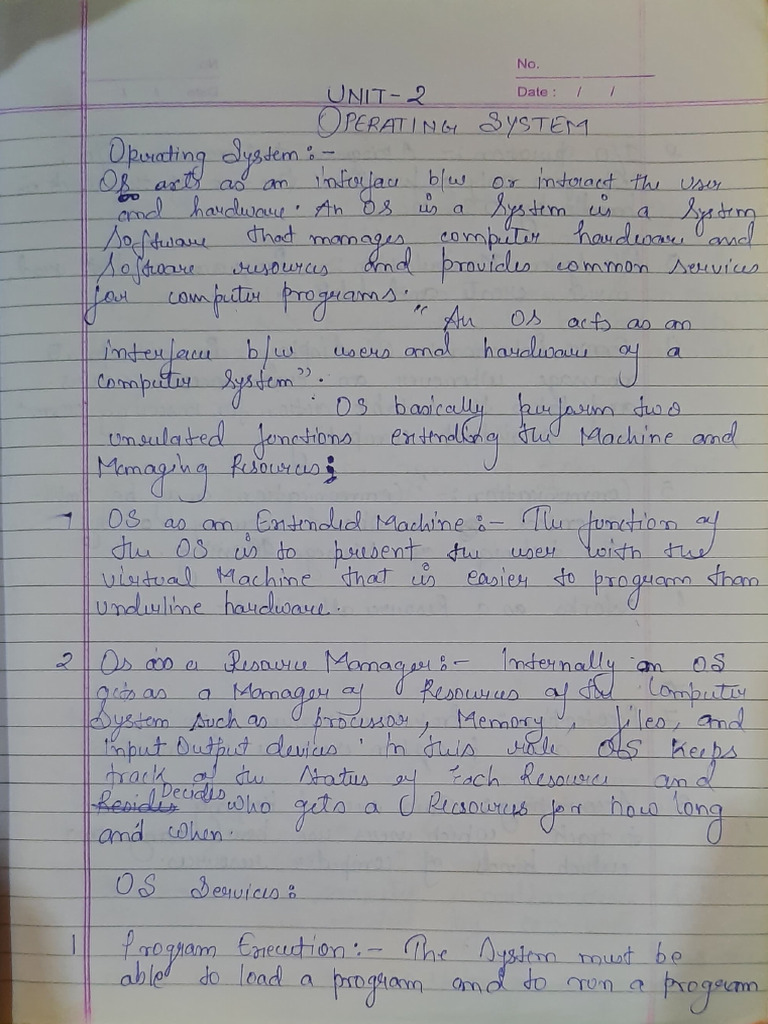 No.
Date : / /
UNIT-2
OPERATING SYSTEM
Operating System :-
OS acts as an interface b/w or interact the user
and hardware. An OS is a System is a System
Software that manages computer hardware and
Software resources and provides common services
for computer programs.
"An OS acts as an
interface b/w users and hardware of a
computer System".
OS basically perform two
unrelated functions extending the Machine and
Managing Resources:
1 OS as an Extended Machine :- The function of
the OS is to present the user with the
virtual Machine that is easier to program than
underline hardware.
2 OS as a Resource Manager :- Internally an OS
acts as a Manager of Resources of the Computer
System such as processor, Memory, files, and
input Output devices. In this role OS keeps
track of the Status of Each Resource and
Decides who gets a Resources for how long
and when.
OS Services:
1 Program Execution :- The System must be
able to load a program and to run a program